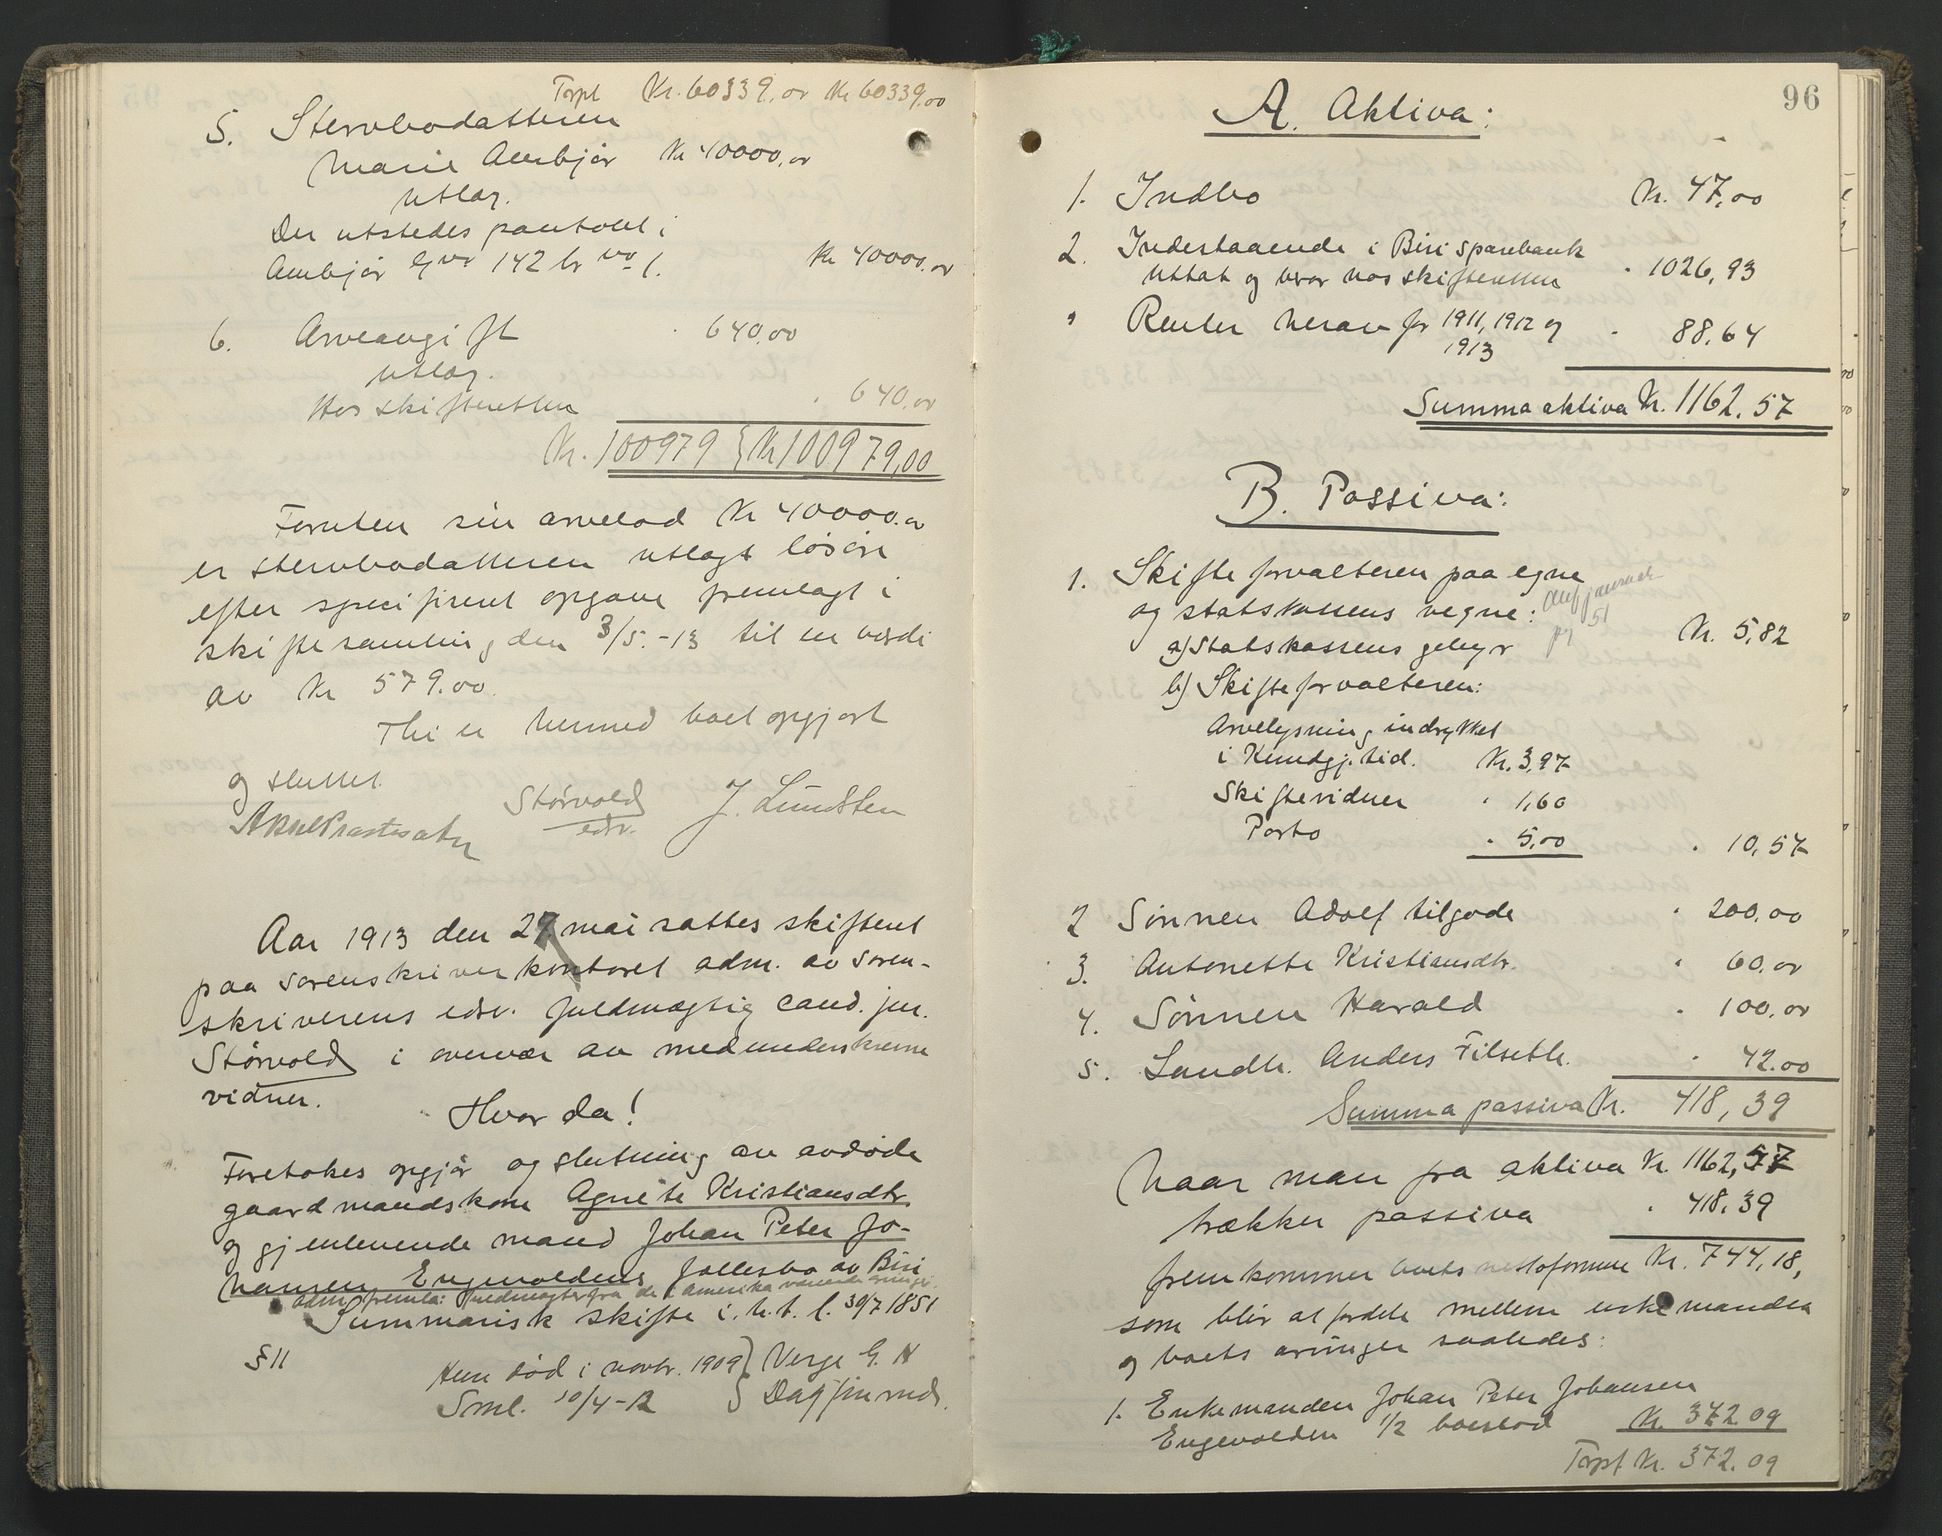 Trspt Kr. 60339,00 Kr 60339,00
5. Stervbodatteren
Marie Aurbjør Kr 40000,00
utlæg.
Der utstedes pantobl. i
Aurbjør gno 142 br no 1. Kr 40000,00
6. Arveavgift " 640,00
utlæg.
Hos skifteretten " 640,00
Kr. 100979 } Kr 100979,00
Foruten sin arvelod Kr 40000,00
er stervbodatteren utlagt løsøre
efter specificert opgave fremlagt i
skiftesamling den 3/5 -13 til en værdi
av Kr 579.00.
Thi er hermed boet opgjort
og sluttet.
Størvold J. Lundsten
edsv.
Aar 1913 den 29. mai sattes skifteret
paa sorenskriverkontoret adm. av soren-
skriverens edsv. fuldmægtig cand. jur.
Størvold i overvær av medunderskrevne
vidner.
Hvor da!
Foretokes opgjør og slutning av avdøde
gaardmandskone Agnete Kristiansdtr.
og gjenlevende mand Johan Peter Jo-
hansen Engevoldens fællesbo av Biri
adm. fremla: fuldmagter fra de i Amerika værende arvinger.
Summarisk skifte i. h. t. l. 30/7 1851
§ 11
Hun død i novbr. 1909 } Verge G. H
Sml. 10/4-12 } Dagfin mdr.
96
A. Aktiva:
1. Indbo Kr. 47,00
2. Indestaaende i Biri Sparebank
uttat og bero hos skifteretten " 1026,93
" Renter herav for 1911, 1912 og
1913 " 88,64
Summa aktiva Kr. 1162,57
B. Passiva:
1. Skifteforvalteren paa egne
og statskassens vegne:
pg 51
a) Statskassens gebyr Kr. 5,82
b) Skifteforvalteren:
Arvelysning indrykket
i Kundgj. tid. Kr. 3,97
Skiftevidner " 1,60
Porto " 5,00 " 10,57
2 Sønnen Adolf tilgode " 200,00
3. Antonette Kristiansdtr. " 60,00
4. Sønnen Harald " 100,00
5. Landh. Anders Filseth. " 42.00
Summa passiva Kr. 418,39
Naar man fra aktiva Kr. 1162,57
trækker passiva " 418,39
fremkommer boets nettoformue Kr. 744,18,
som blir at fordele mellem enkemanden
og boets arvinger saaledes:
1. Enkemanden Johan Peter Johansen
Engevolden 1/2 boeslod Kr. 372.09
Trspt Kr. 372.09